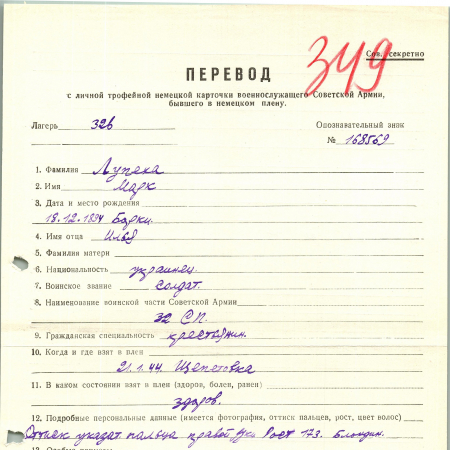 349
Сов. секретно
ПЕРЕВОД
с личной трофейной немецкой карточки военнослужащего Советской Армии,
бывшего в немецком плену.
Лагерь 326 Опознавательный знак
№ 168569
1. Фамилия Лупека
2. Имя Марк
3. Дата и место рождения
18.12.1894 Борки
4. Имя отца Илья
5. Фамилия матери
6. Национальность украинец.
7. Воинское звание солдат.
8. Наименование воинской части Советской Армии
32 СП.
9. Гражданская специальность крестьянин.
10. Когда и где взят в плен
21.1.44. Шепетовка
11. В каком состоянии взят в плен (здоров, болен, ранен)
здоров.
12. Подробные персональные данные (имеется фотография, оттиск пальцев, рост, цвет волос)
Оттиск указат. пальца правой руки Рост 173. Блондин.